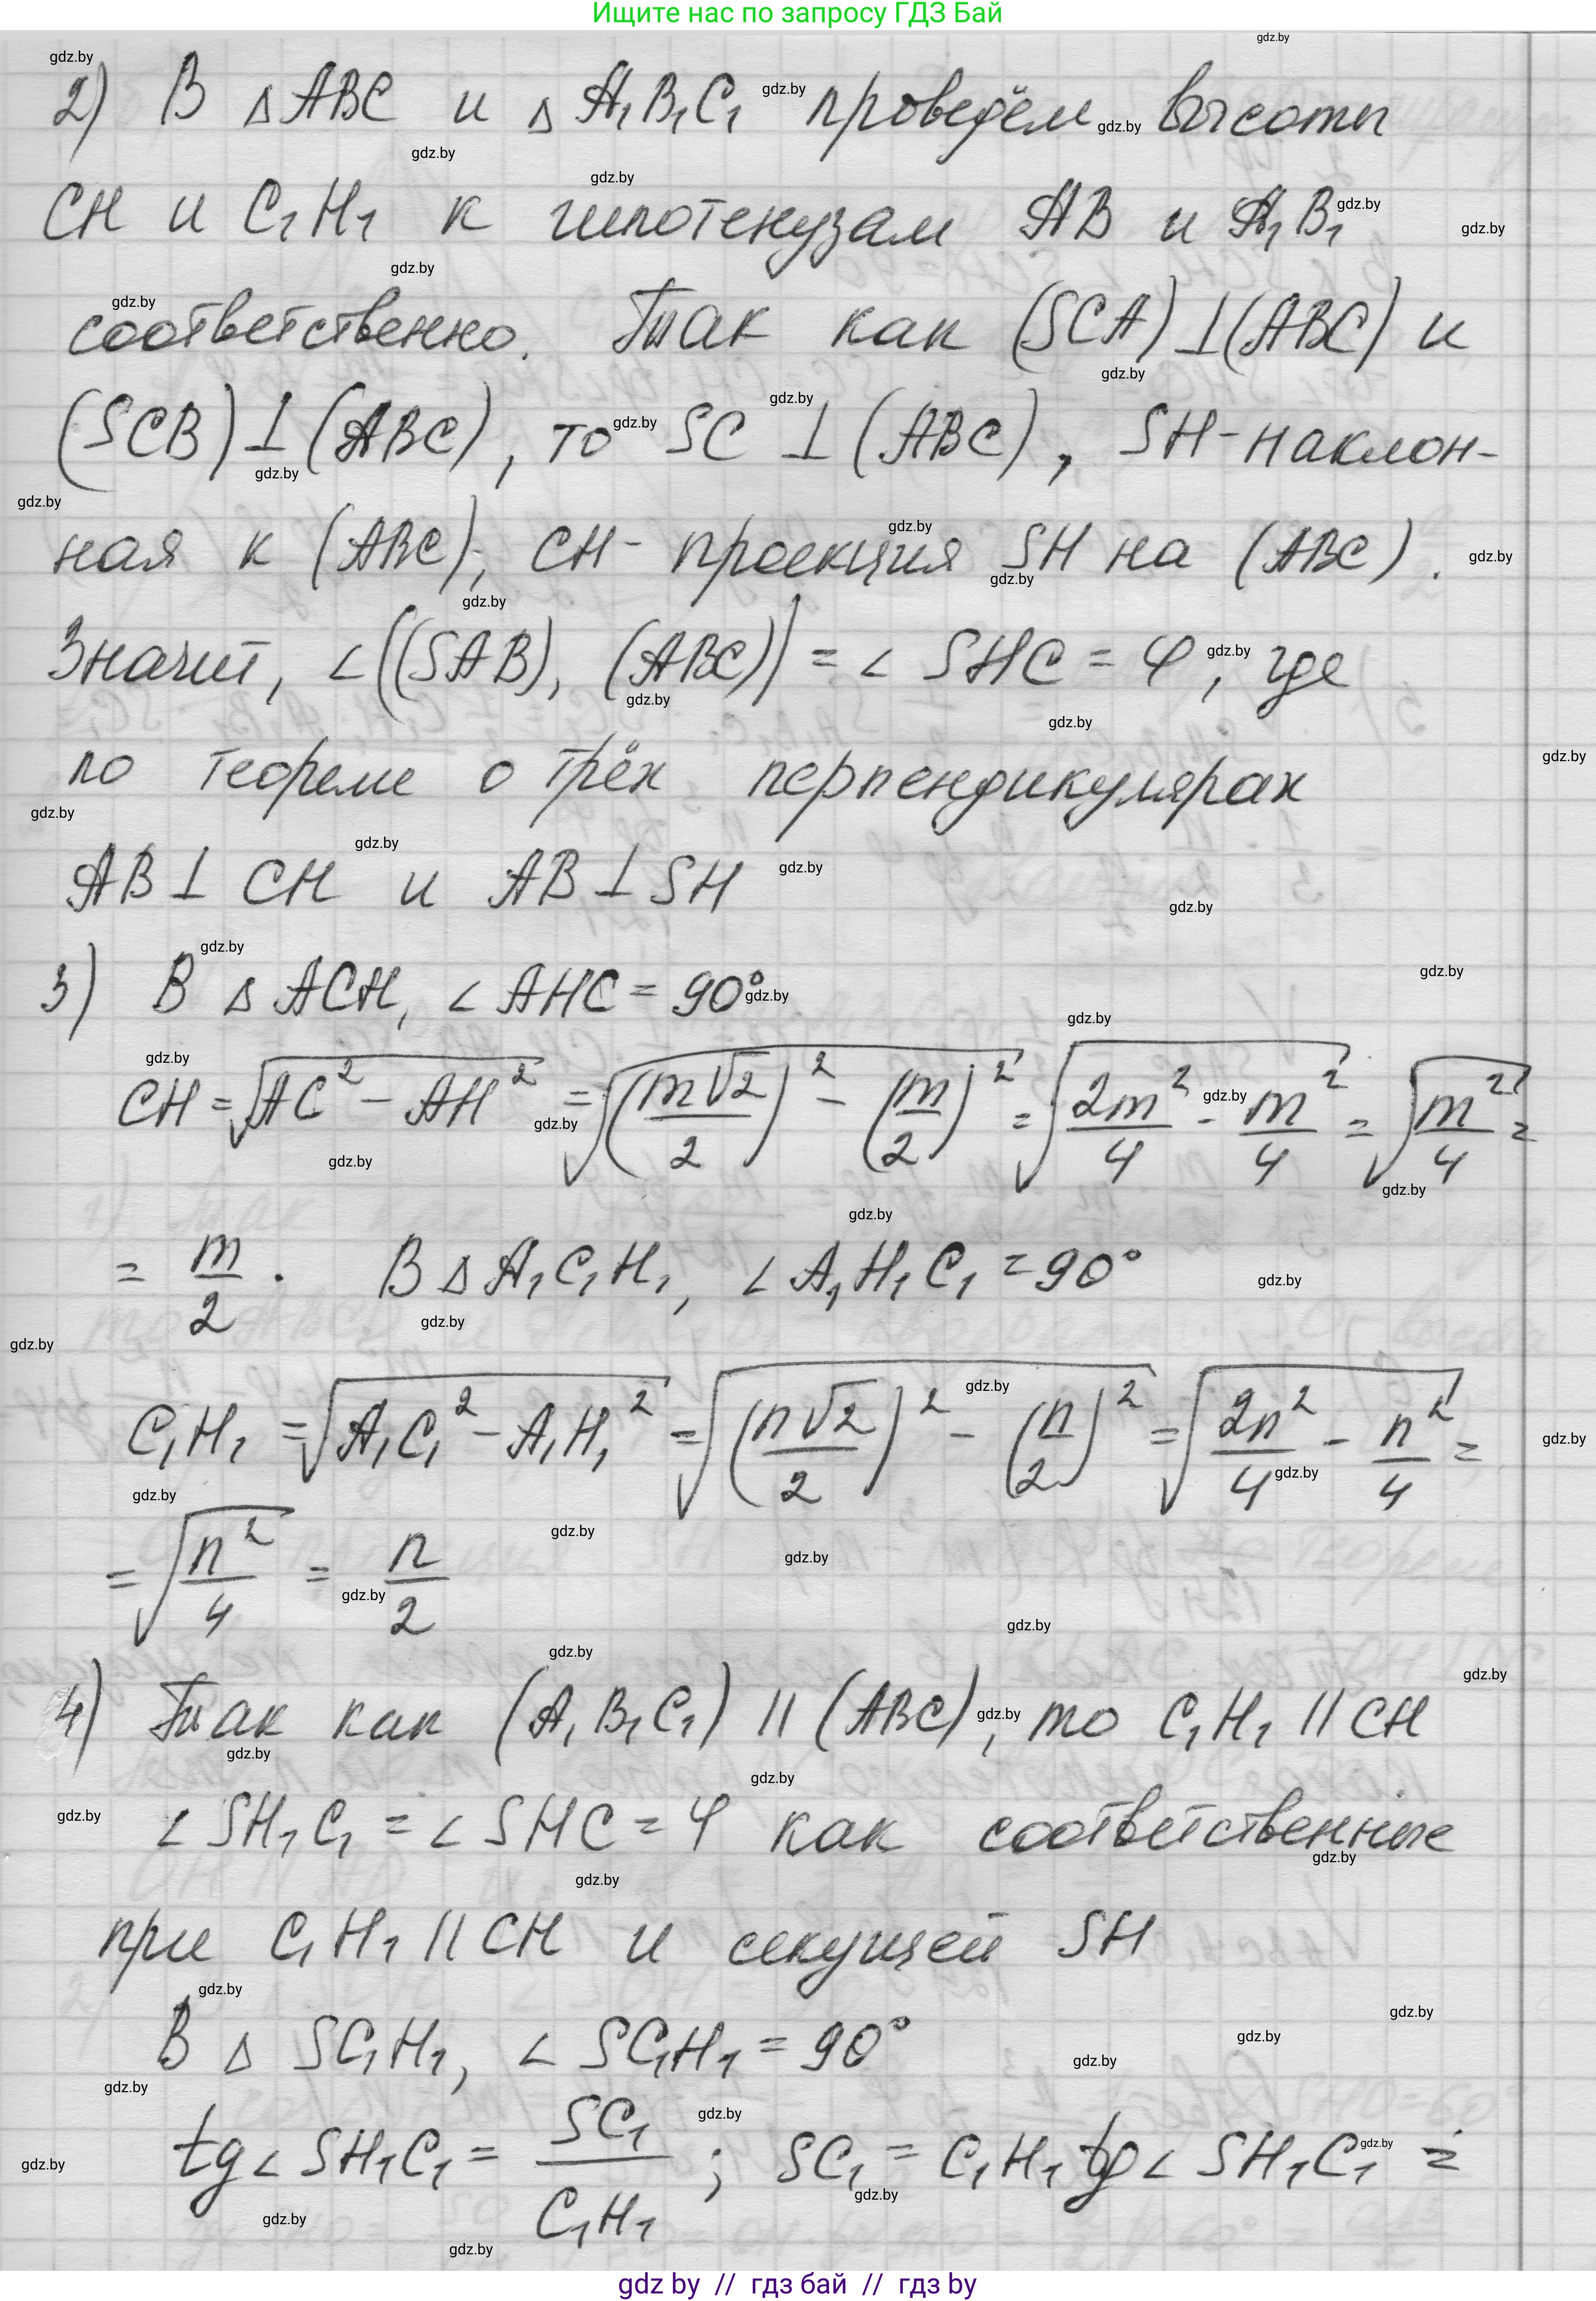 Ищите нас по запросу ГДЗ Бай
2) В △ABC и △A₁B₁C₁ проведём высоты
CH и C₁H₁ к гипотенузам AB и A₁B₁
соответственно. Так как (SCA)⊥(ABC) и
(SCB)⊥(ABC), то SC⊥(ABC), SH-наклон-
ная к (ABC), CH- проекция SH на (ABC).
Значит, ∠((SAB), (ABC)) = ∠SHC = φ, где
по теореме о трёх перпендикулярах
AB⊥CH и AB⊥SH
3) В △ACH, ∠AHC = 90°
CH = √(AC² - AH²) = √((m√2/2)² - (m/2)²) = √(2m²/4 - m²/4) = √(m²/4) =
= m/2. В △A₁C₁H₁, ∠A₁H₁C₁ = 90°
C₁H₁ = √(A₁C₁² - A₁H₁²) = √((n√2/2)² - (n/2)²) = √(2n²/4 - n²/4) =
= √(n²/4) = n/2
4) Так как (A₁B₁C₁) || (ABC), то C₁H₁ || CH
∠SH₁C₁ = ∠SHC = φ как соответственные
при C₁H₁ || CH и секущей SH
В △SC₁H₁, ∠SC₁H₁ = 90°
tg∠SH₁C₁ = SC₁/C₁H₁; SC₁ = C₁H₁ tg∠SH₁C₁ =
gdz by // гдз бай // гдз by